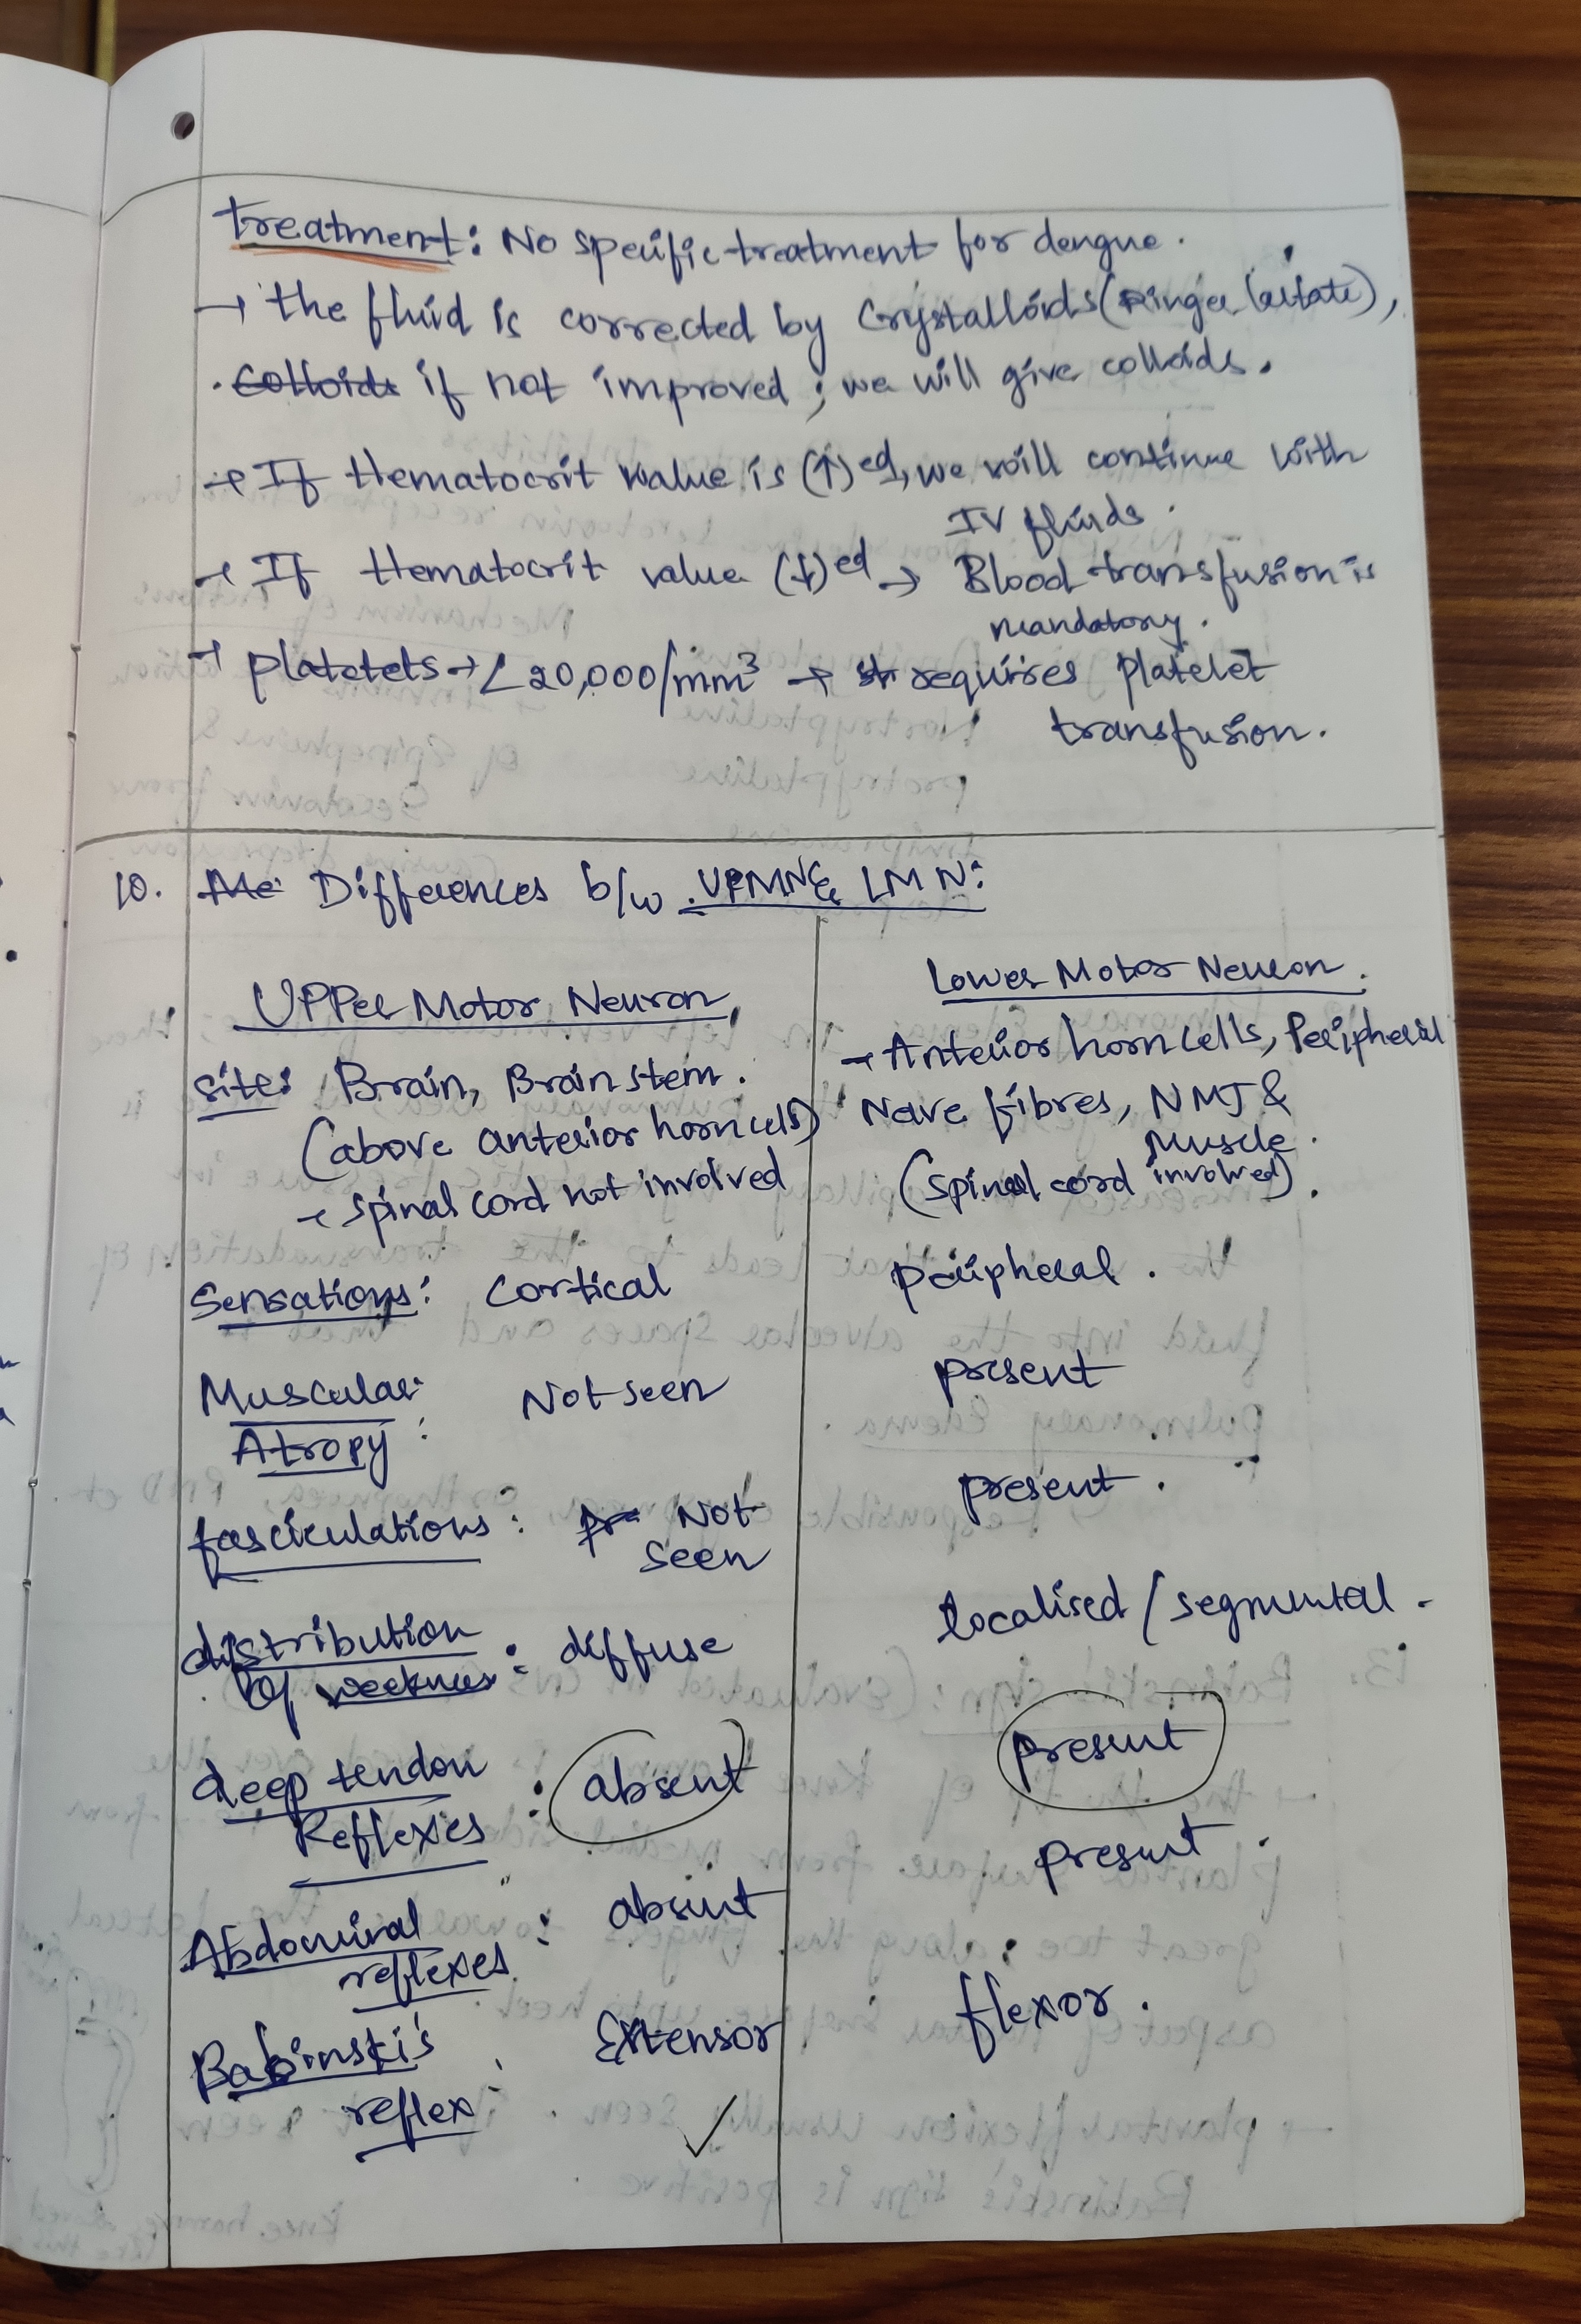 treatment: No specific treatment for dengue.
→ the fluid is corrected by Crystalloids (Ringer lactate),
. colloids if not improved; we will give colloids.
→ If Hematocrit value is (↑)ed, we will continue with
IV fluids.
→ If Hematocrit value (↓)ed → Blood transfusion is
mandatory.
→ platetets → < 20,000/mm³ → requires platelet
transfusion.
10. Differences b/w UPMN & LMN:
UPPer Motor Neuron,
Lower Motor Neuron.
site: Brain, Brain stem.
(above anterior horn cells)
→ spinal cord not involved
→ Anterior horn cells, Peripheral
Nerve fibres, NMJ &
Muscle.
(spinal cord involved).
Sensations: Cortical
peripheral.
Muscular Not seen
Atropy:
present
fasciculations: Not
seen
present.
distribution : diffuse
of weeknes
localised / segmental.
deep tendon : absent
Reflexes
present
Abdominal : absent
reflexes
present.
Babinski's : Extensor
reflex
flexor.